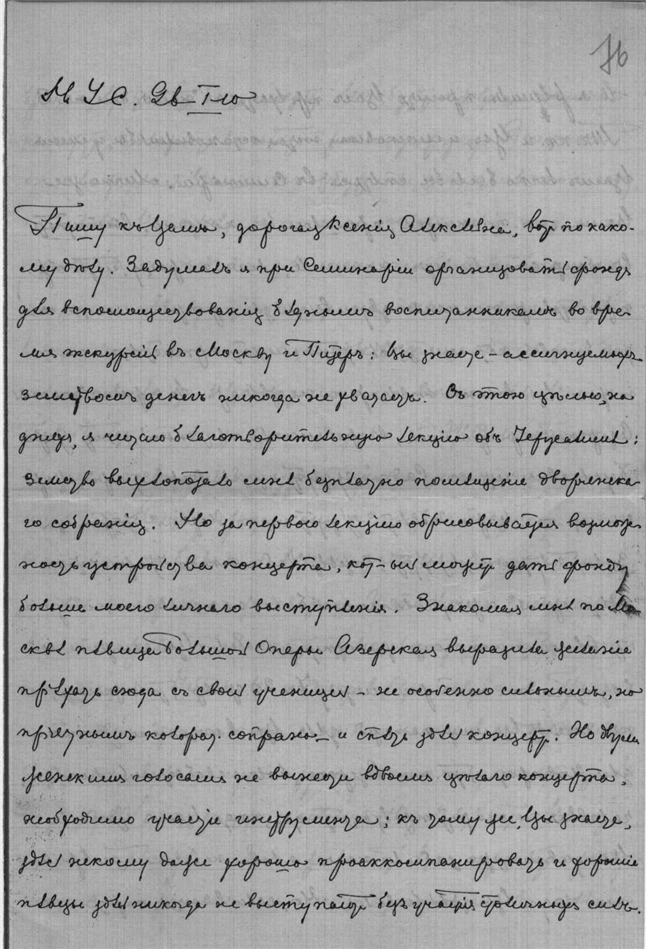 76
М У С. Дв I-ю
Пишу къ Вамъ, дорогая Ксенія Алексѣевна, вотъ по како-
му дѣлу. Задумалъ я при Семинаріи организовать фондъ
для вспомоществованія бѣднымъ воспитанникамъ во вре-
мя экскурсій въ Москву и Питеръ: Вы знаете – ассигнуемыхъ
земствомъ денегъ никогда не хватаетъ. Съ этою цѣлью, на
дняхъ, я читаю благотворительную лекцію объ Іерусалимѣ:
земство выхлопотало мнѣ безплатно помѣщеніе дворянска-
го собранія. Но за первою лекціею обрисовывается возмож-
ность устройства концерта, кот-ый можетъ дать фонду
больше моего личнаго выступленія. Знакомая мнѣ по Мо-
сквѣ пѣвица Большой Оперы Азерская выразила желаніе
пріѣхать сюда съ своей ученицей – не особенно сильнымъ, но
пріятнымъ колорат. сопрано – и спѣть здѣсь концертъ. Но двумя
женскими голосами не вынести вдвоемъ цѣлаго концерта,
необходимо участіе инструмента; къ тому же, Вы знаете,
здѣсь некому даже хорошо проаккомпанировать и хорошіе
пѣвцы здѣсь никогда не выступаютъ безъ участія столичныхъ силъ.